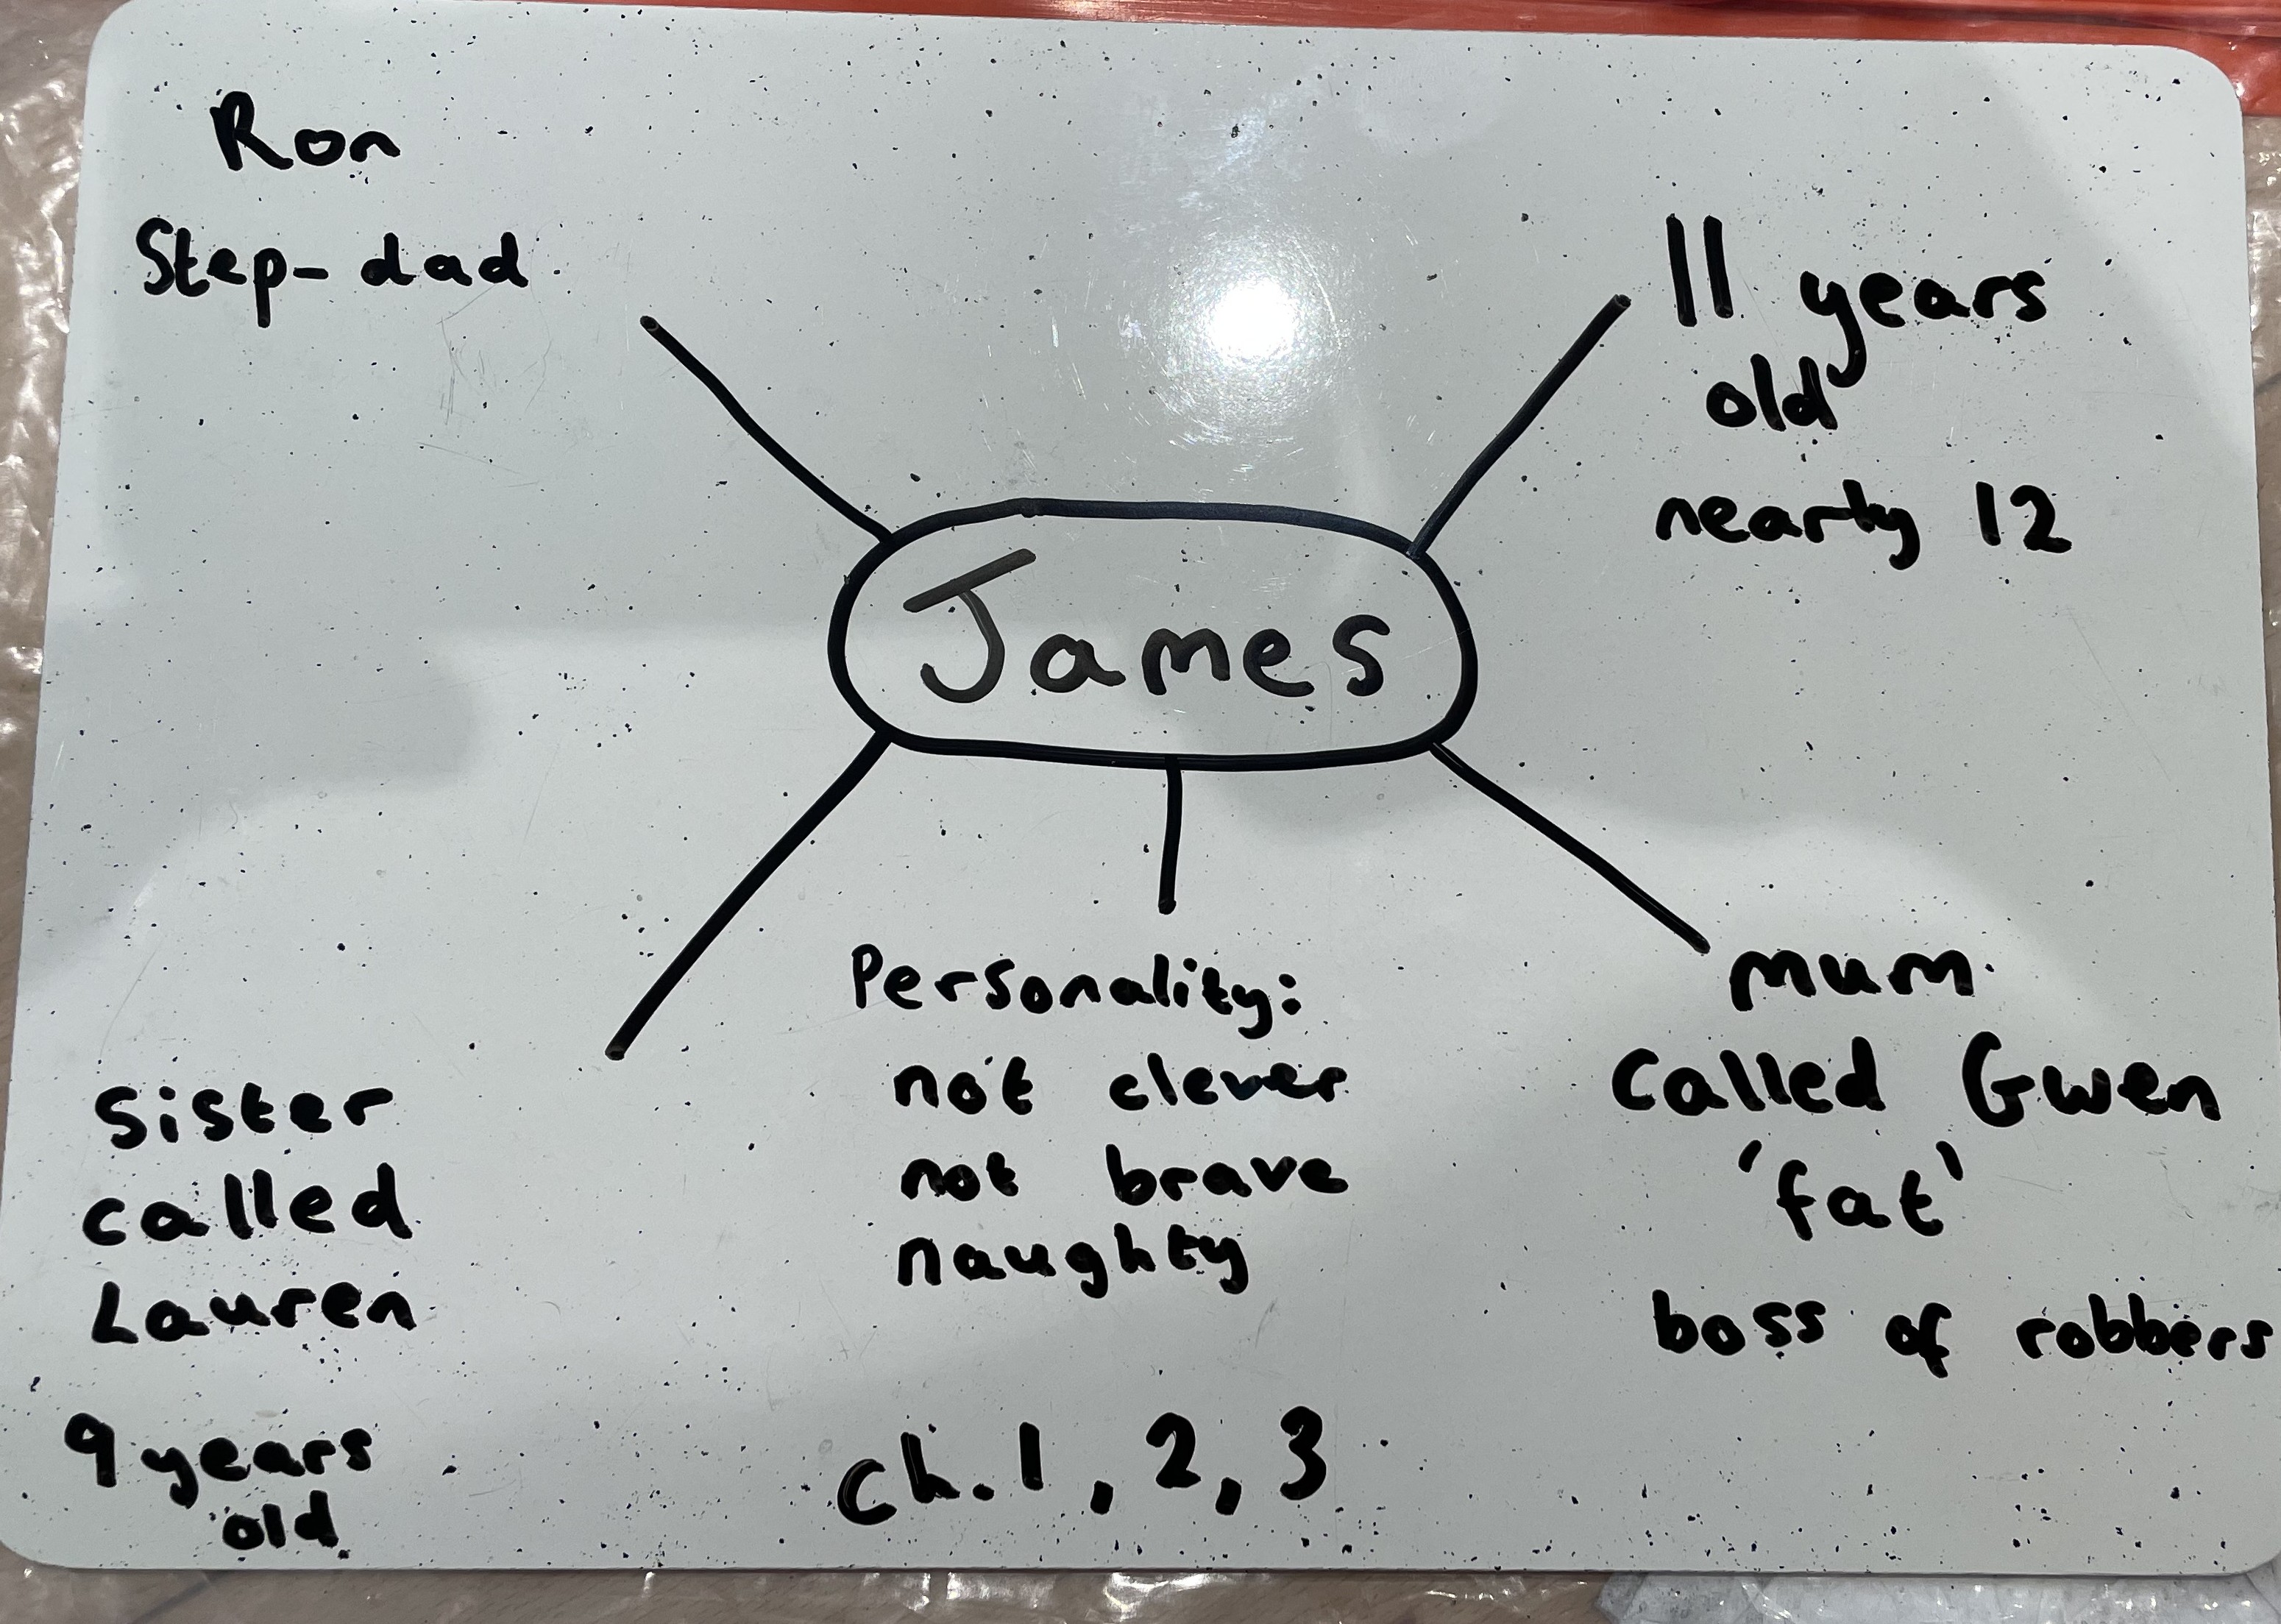 Ron
Step-dad
11 years
old
nearly 12
James
Personality:
not clever
not brave
naughty
mum
called Gwen
'fat'
boss of robbers
Sister
called
Lauren
9 years
old
ch. 1, 2, 3